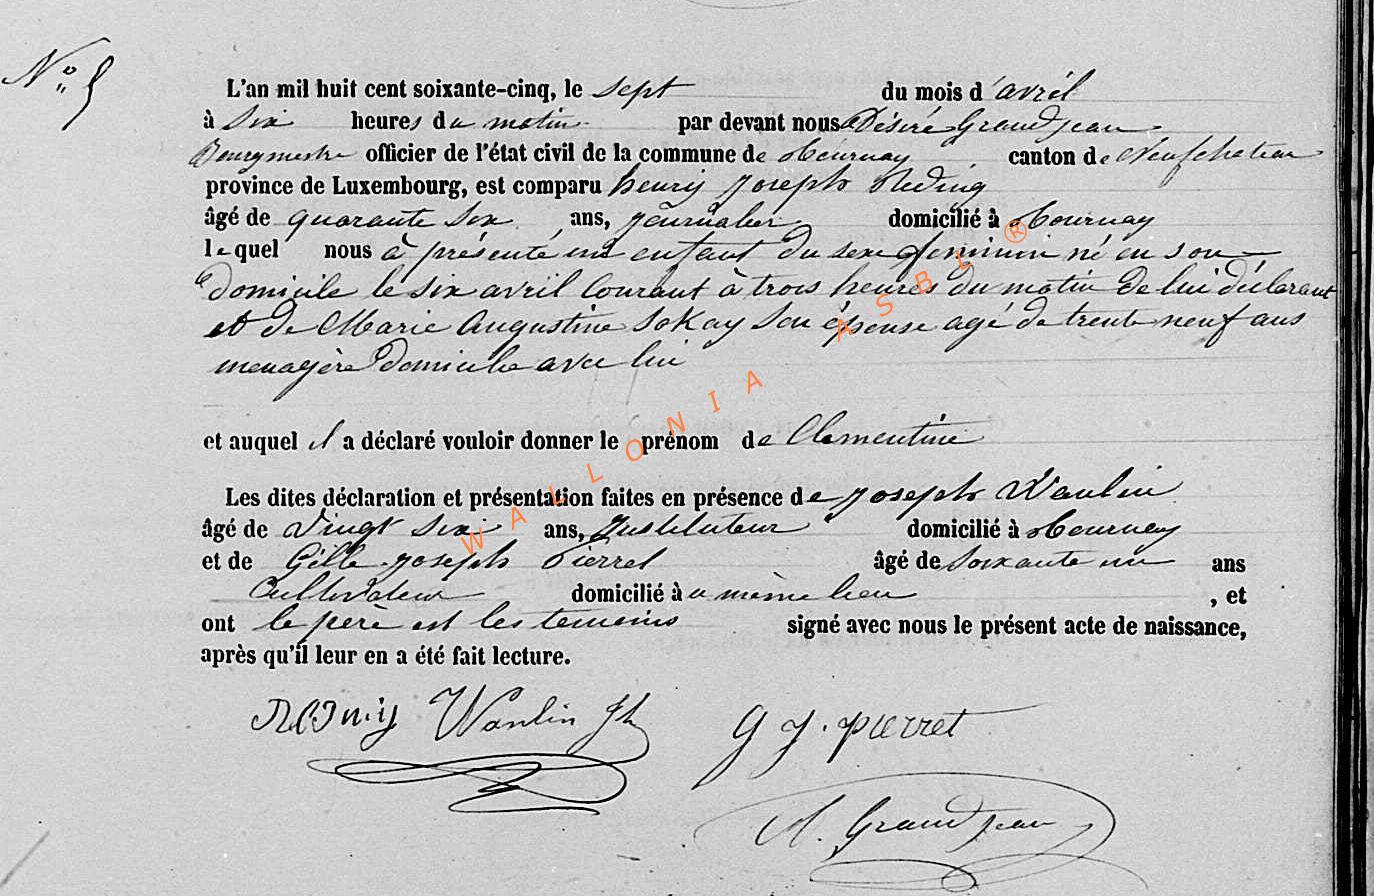 N° 5
L'an mil huit cent soixante-cinq, le sept du mois d'avril
à Six heures du matin par devant nous Désiré Grandjean
Bourgmestre officier de l'état civil de la commune de Tournay canton de Neufchateau
province de Luxembourg, est comparu henry Joseph Reding
âgé de quarante six ans, journalier domicilié à Tournay
lequel nous à présenté un enfant du sexe feminin né en son
domicile le six avril Courant à trois heures du matin de lui déclarant
et de Marie Augustine Sokay Son épouse agé de trente neuf ans
menagère Domicilie avec lui
et auquel il a déclaré vouloir donner le prénom de Clementine
Les dites déclaration et présentation faites en présence de Joseph Wanlin
âgé de Vingt Six ans, Instituteur domicilié à Tournay
et de Gille Joseph Pierret âgé de Soixante un ans
Cultivateur domicilié à u même lieu , et
ont le père et les temoins signé avec nous le présent acte de naissance,
après qu'il leur en a été fait lecture.
Reding Wanlin Jh G J. pierret
Grandjean
WALLONIA ASBL ®